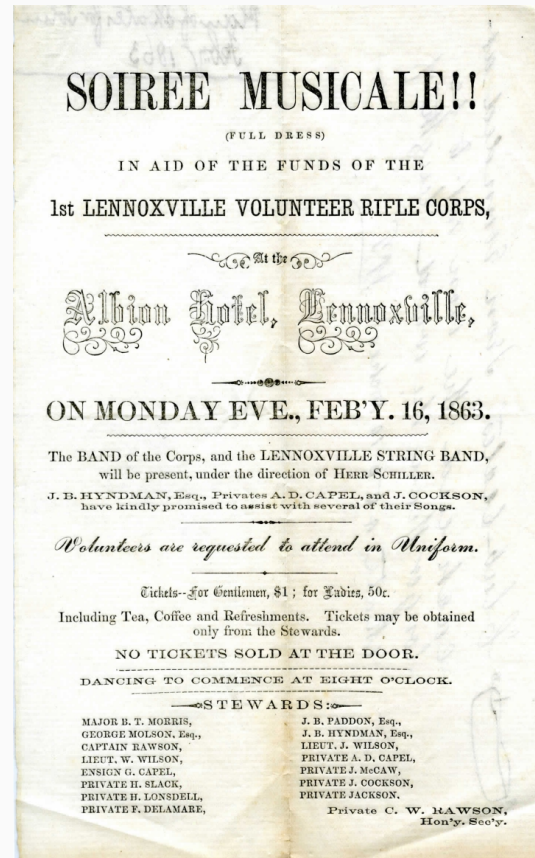 SOIREE MUSICALE!!
(FULL DRESS)
IN AID OF THE FUNDS OF THE
1st LENNOXVILLE VOLUNTEER RIFLE CORPS,
At the
Albion Hotel, Lennoxville,
ON MONDAY EVE., FEB'Y. 16, 1863.
The BAND of the Corps, and the LENNOXVILLE STRING BAND,
will be present, under the direction of HERR SCHILLER.
J. B. HYNDMAN, Esq., Privates A. D. CAPEL, and J. COCKSON,
have kindly promised to assist with several of their Songs.
Volunteers are requested to attend in Uniform.
Tickets--For Gentlemen, $1 ; for Ladies, 50c.
Including Tea, Coffee and Refreshments. Tickets may be obtained
only from the Stewards.
NO TICKETS SOLD AT THE DOOR.
DANCING TO COMMENCE AT EIGHT O'CLOCK.
STEWARDS:
MAJOR B. T. MORRIS,
GEORGE MOLSON, Esq.,
CAPTAIN RAWSON,
LIEUT. W. WILSON,
ENSIGN G. CAPEL,
PRIVATE H. SLACK,
PRIVATE H. LONSDELL,
PRIVATE F. DELAMARE,
J. B. PADDON, Esq.,
J. B. HYNDMAN, Esq.,
LIEUT. J. WILSON,
PRIVATE A. D. CAPEL,
PRIVATE J. McCAW,
PRIVATE J. COCKSON,
PRIVATE JACKSON.
Private C. W. RAWSON,
Hon'y. Sec'y.